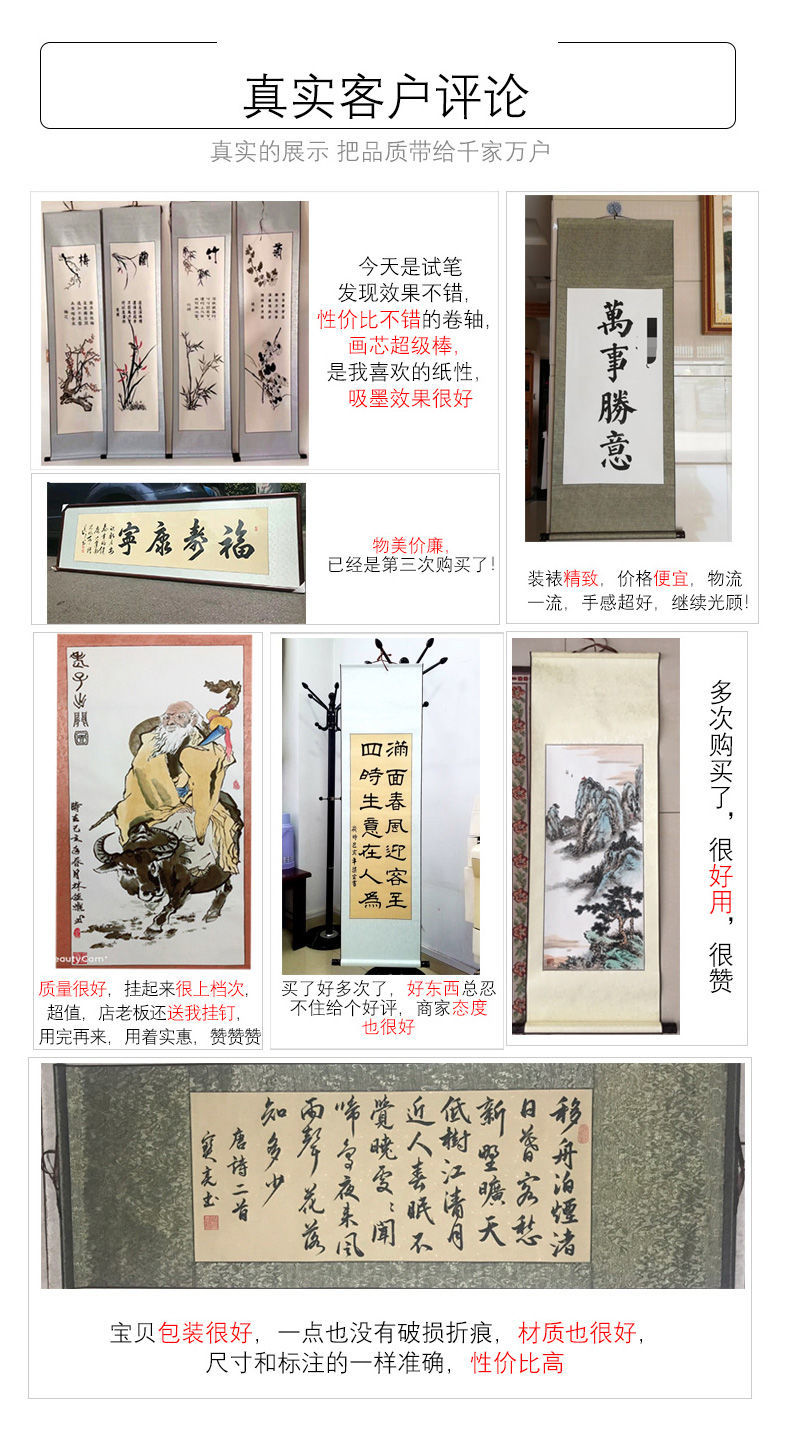 真实客户评论
真实的展示 把品质带给千家万户
梅
蘭
竹
菊
今天是试笔
发现效果不错，
性价比不错的卷轴，
画芯超级棒，
是我喜欢的纸性，
吸墨效果很好
萬事勝意
装裱精致，价格便宜，物流
一流，手感超好，继续光顾！
福壽康寧
物美价廉，
已经是第三次购买了！
老子出關圖
BeautyCam
质量很好，挂起来很上档次，
超值，店老板还送我挂钉，
用完再来，用着实惠，赞赞赞
滿面春風迎客至
四時生意在人為
买了好多次了，好东西总忍
不住给个好评，商家态度
也很好
多次购买了，很好用，很赞
移舟泊煙渚
日暮客愁
新野曠天
低樹江清月
近人春眠不
覺曉處處聞
啼鳥夜来風
雨聲花落
知多少
唐詩二首
寶亮书
宝贝包装很好，一点也没有破损折痕，材质也很好，
尺寸和标注的一样准确，性价比高